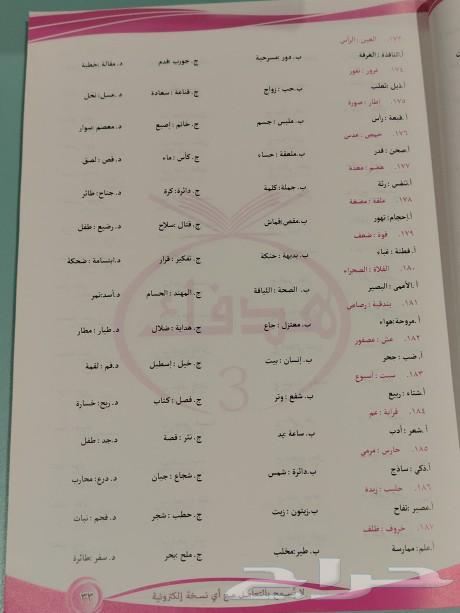 ١٧٣. العين : الرأس
أ.النافذة : الغرفة ب. دور : مسرحية ج. جورب : قدم د. مقالة : خطبة
١٧٤. غرور : نفور
أ.ذيل : ثعلب ب.حب : زواج ج. قناعة : سعادة د.عسل : نحل
١٧٥. إطار : صورة
أ.قبعة : رأس ب. ملبس : جسم ج. خاتم : إصبع د. معصم :سوار
١٧٦. حمص : عدس
أ.صحن : قدر ب.ملعقة : حساء ج. كأس : ماء د. قص : لصق
١٧٧. هضم : معدة
أ.تنفس : رئة ب. جملة : كلمة ج. دائرة: كرة د. جناح: طائر
١٧٨. ملقة : مضغة
أ.إحجام : تهور ب.مقص:قماش ج. قتال :سلاح د. رضيع : طفل
١٧٩. قوة : ضعف
أ. فطنة : غباء ب. بديهة : حنكة ج. تفكير : قرار د.ابتسامة : ضحكة
١٨٠. الفلاة : الصحراء
أ.الأعمى : البصير ب. الصحة : اللياقة ج. المهند : الحسام د. أسد:نمر
١٨١. بندقية : رصاص
أ.مروحة:هواء ب. معتزل : حاج ج. هداية : ضلال د. طيار : مطار
١٨٢. عش : عصفور
أ. ضب : جحر ب. إنسان : بيت ج. خيل : إسطبل د.فم : لقمة
١٨٣. سبت : أسبوع
أ.شتاء : ربيع ب. شفع : وتر ج. فصل : كتاب د. ربح: خسارة
١٨٤. قرابة : عم
أ.شعر : أدب ب. ساعة :يد ج. نثر : قصة د.جد : طفل
١٨٥. حارس : مرمي
أ.ذكي : ساذج ب.دائرة : شمس ج. شجاع : جبان د. درع: محارب
١٨٦. حليب : زبدة
أ.عصير : تفاح ب.زيتون : زيت ج. حطب : شجر د. فحم : نبات
١٨٧. خروف : ظلف
أ.علم: ممارسة ب. طير:مخلب ج. ملح :بحر د. سفر :طائرة
هدفك
3
لا يسمح بالتعامل مع أي نسخة إلكترونية
٣٣
حراج